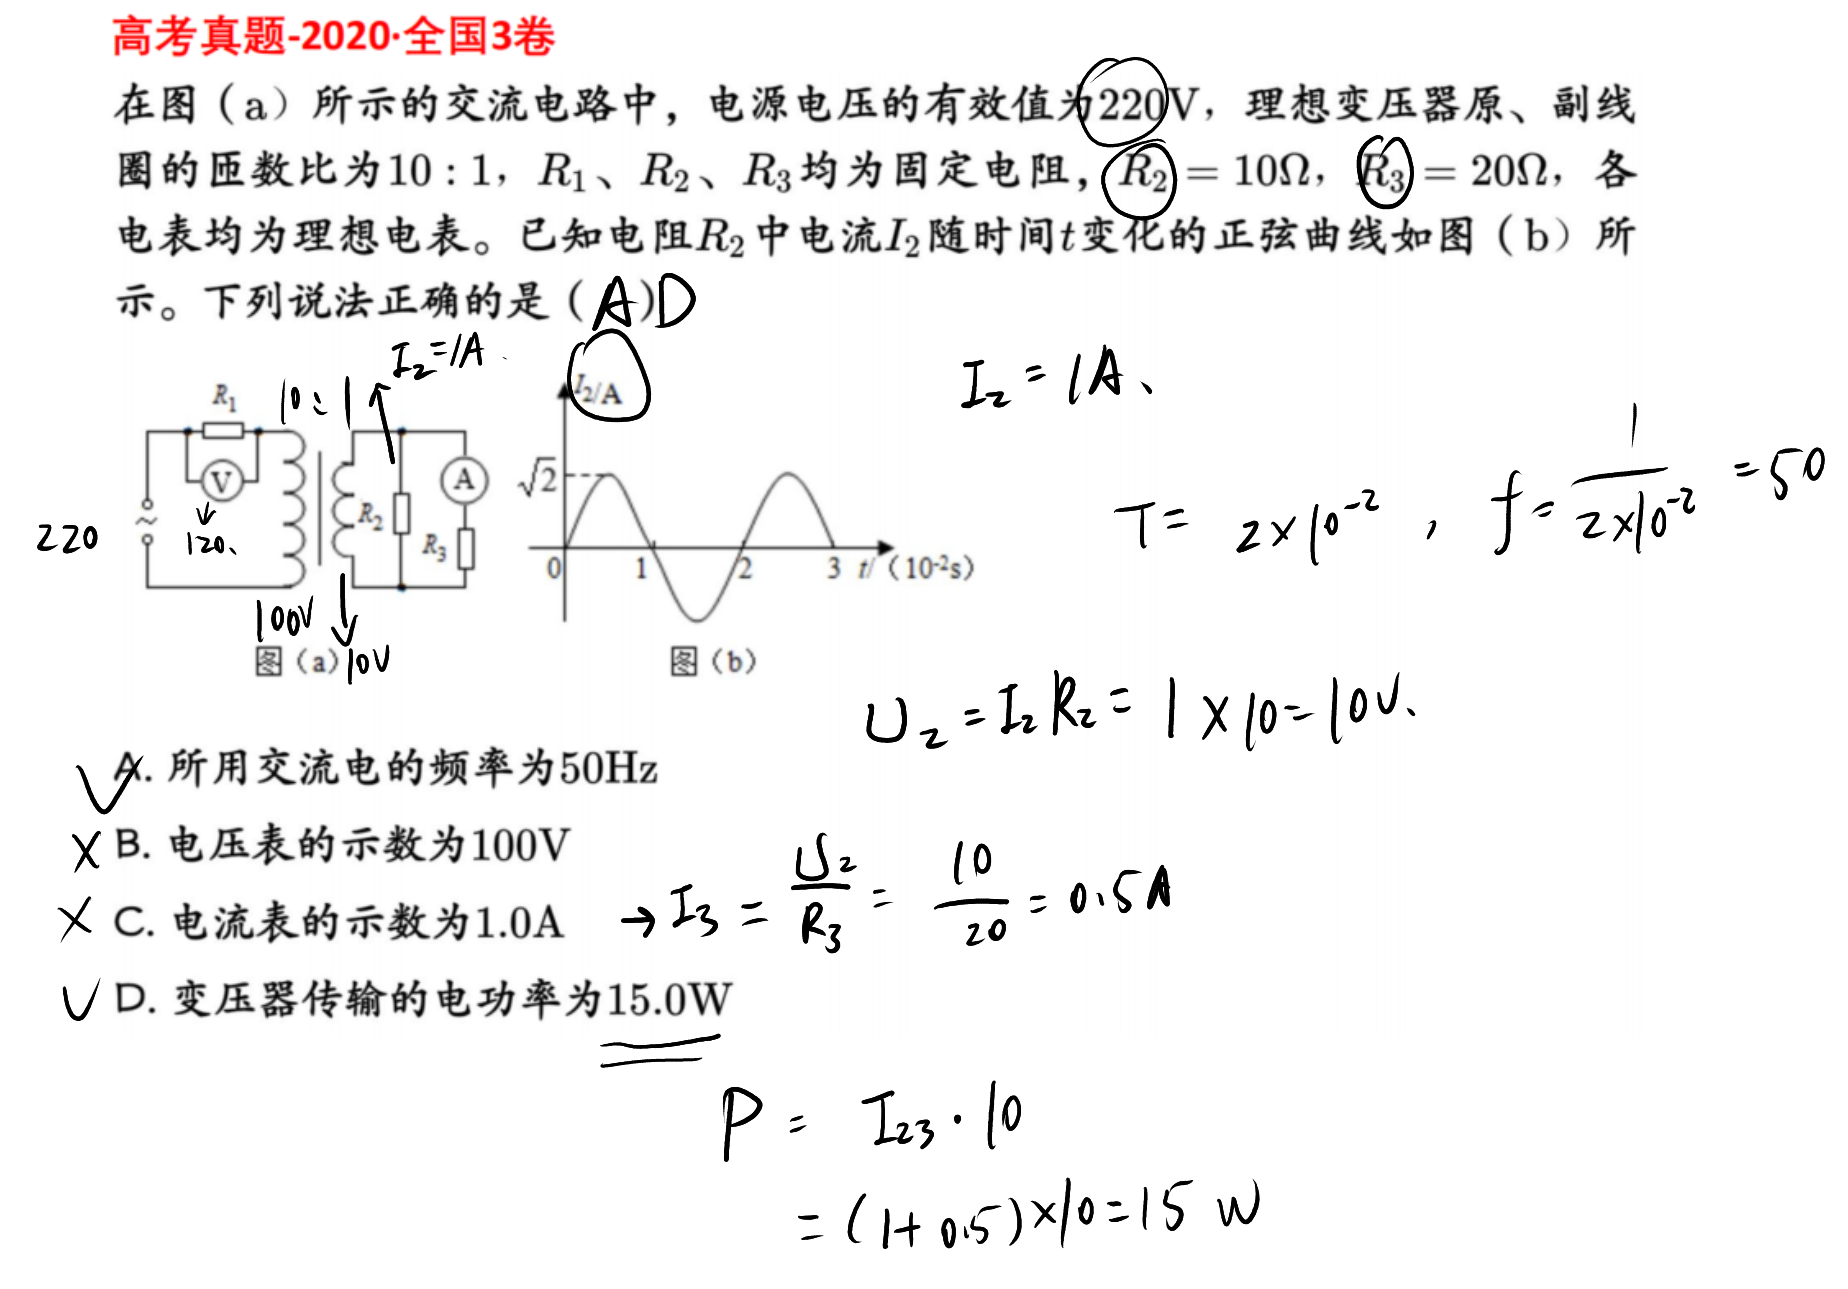 高考真题-2020·全国3卷
在图（a）所示的交流电路中，电源电压的有效值为220V，理想变压器原、副线
圈的匝数比为10：1，R₁、R₂、R₃均为固定电阻，R₂ = 10Ω，R₃ = 20Ω，各
电表均为理想电表。已知电阻R₂中电流I₂随时间t变化的正弦曲线如图（b）所
示。下列说法正确的是（A）D
I₂=1A.
I₂/A
R₁
10：1
V
A
R₂
R₃
220
120、
100V
10V
图（a）
√2
0 1 2 3 t/（10⁻²s）
图（b）
I₂ = 1A、
T = 2×10⁻²， f = 1/(2×10⁻²) = 50
U₂ = I₂R₂ = 1×10=10V.
A. 所用交流电的频率为50Hz
× B. 电压表的示数为100V
× C. 电流表的示数为1.0A → I₃ = U₂/R₃ = 10/20 = 0.5A
D. 变压器传输的电功率为15.0W
P = I₂₃·10
= (1+0.5)×10=15 W